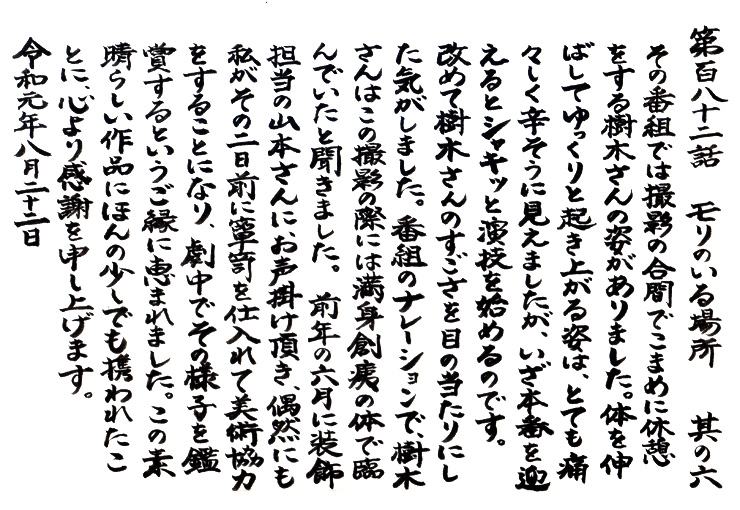 第百八十二話　モリのいる場所　其の六
その番組では撮影の合間でこまめに休憩
をする樹木さんの姿がありました。体を伸
ばしてゆっくりと起き上がる姿は、とても痛
々しく辛そうに見えましたが、いざ本番を迎
えるとシャキッと演技を始めるのです。
改めて樹木さんのすごさを目の当たりにし
た気がしました。番組のナレーションで、樹木
さんはこの撮影の際には満身創痍の体で臨
んでいたと聞きました。　前年の六月に装飾
担当の山本さんに、お声掛け頂き、偶然にも
私がその二日前に寧苛を仕入れて美術協力
をすることになり、劇中でその様子を鑑
賞するというご縁に恵まれました。この素
晴らしい作品にほんの少しでも携われたこ
とに、心より感謝を申し上げます。
令和元年八月二十二日